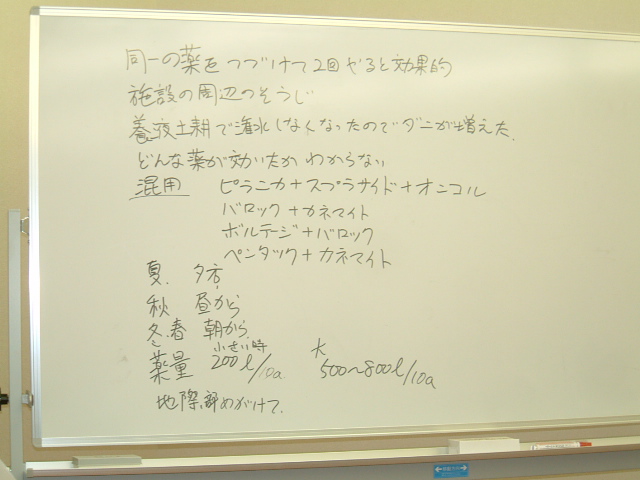 同一の薬をつづけて2回やると効果的
施設の周辺のそうじ
養液土耕で潅水しなくなったのでダニが増えた.
どんな薬が効いたかわからない
混用 ピラニカ+スプラサイド+オニコル
バロック+カネマイト
ボルテージ+バロック
ペンタック+カネマイト
夏. 夕方
秋 昼から
冬.春 朝から
小さい時 大
薬量 200l/10a 500~800l/10a
地際 めがけて.